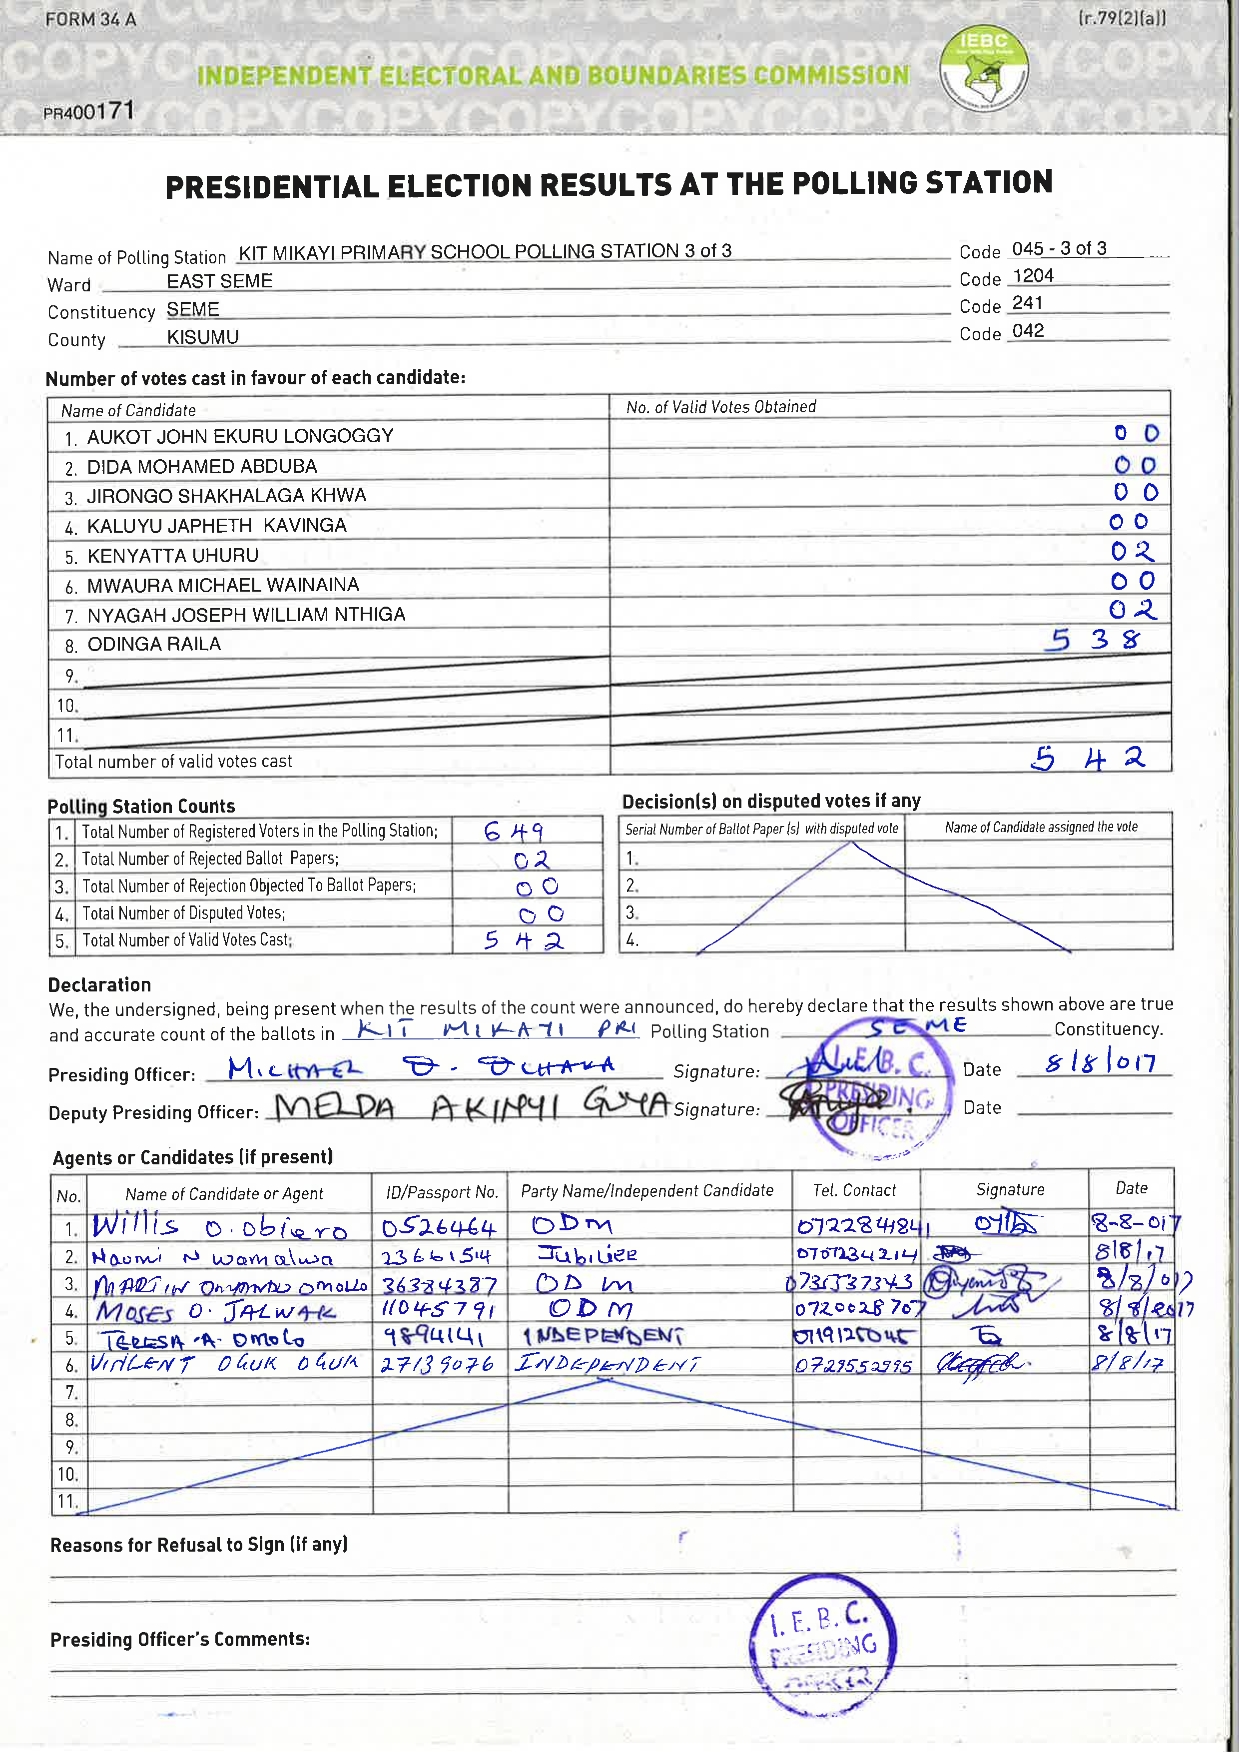 FORM 34 A (r.79(2)(a))
INDEPENDENT ELECTORAL AND BOUNDARIES COMMISSION IEBC
PR400171
PRESIDENTIAL ELECTION RESULTS AT THE POLLING STATION
Name of Polling Station KIT MIKAYI PRIMARY SCHOOL POLLING STATION 3 of 3 Code 045 - 3 of 3
Ward EAST SEME Code 1204
Constituency SEME Code 241
County KISUMU Code 042
Number of votes cast in favour of each candidate:
Name of Candidate No. of Valid Votes Obtained
1. AUKOT JOHN EKURU LONGOGGY 00
2. DIDA MOHAMED ABDUBA 00
3. JIRONGO SHAKHALAGA KHWA 00
4. KALUYU JAPHETH KAVINGA 00
5. KENYATTA UHURU 02
6. MWAURA MICHAEL WAINAINA 00
7. NYAGAH JOSEPH WILLIAM NTHIGA 02
8. ODINGA RAILA 538
9.
10.
11.
Total number of valid votes cast 542
Polling Station Counts
1. Total Number of Registered Voters in the Polling Station; 649
2. Total Number of Rejected Ballot Papers; 02
3. Total Number of Rejection Objected To Ballot Papers; 00
4. Total Number of Disputed Votes; 00
5. Total Number of Valid Votes Cast; 542
Decision(s) on disputed votes if any
Serial Number of Ballot Paper (s) with disputed vote Name of Candidate assigned the vote
1.
2.
3.
4.
Declaration
We, the undersigned, being present when the results of the count were announced, do hereby declare that the results shown above are true
and accurate count of the ballots in KIT MIKAYI PRI Polling Station SEME Constituency.
Presiding Officer: MICHAEL O. OCHAKA Signature: Date 8/8/017
Deputy Presiding Officer: MELDA AKINYI GUYA Signature: Date
I.E.B.C. PRESIDING OFFICER
Agents or Candidates (if present)
No. Name of Candidate or Agent ID/Passport No. Party Name/Independent Candidate Tel. Contact Signature Date
1. Willis O. Obiero 0526464 ODM 0722841841 8-8-017
2. Naomi N wamalwa 23661514 Jubilee 0707234214 8/8/17
3. MARTIN Onyango Omollo 36384387 ODM 8/8/017
4. MOSES O. JALWAK 11045791 ODM 0720028707 8/8/2017
5. TERESA A. Omolo 9894141 INDEPENDENT 8/8/17
6. VINCENT OGUK OGUK 27139076 INDEPENDENT 0729552995 8/8/17
7.
8.
9.
10.
11.
Reasons for Refusal to Sign (if any)
Presiding Officer's Comments:
I.E.B.C.
PRESIDING
OFFICER